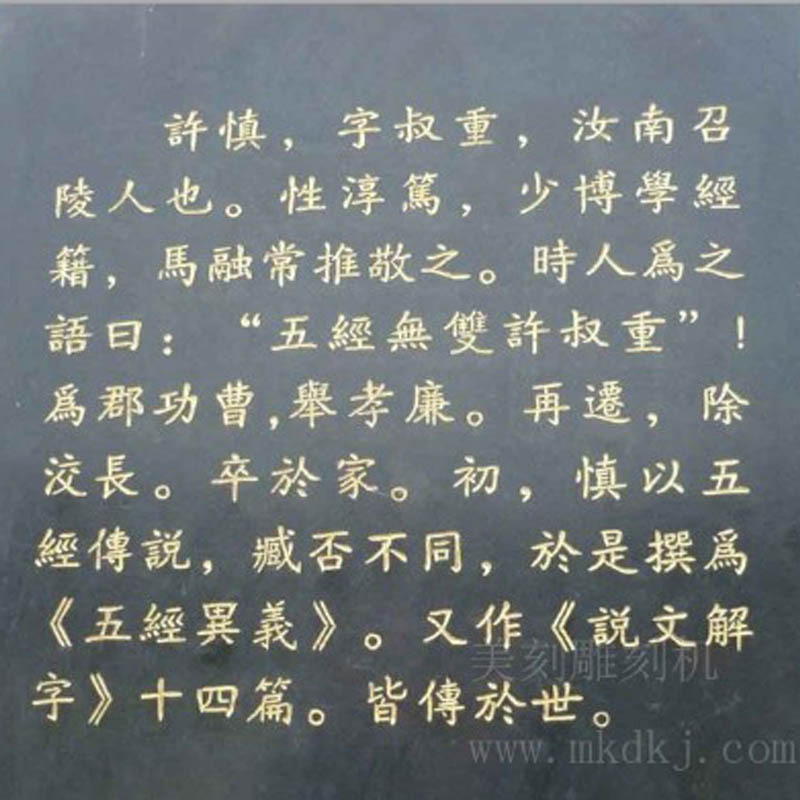 許慎，字叔重，汝南召
陵人也。性淳篤，少博學經
籍，馬融常推敬之。時人爲之
語曰：“五經無雙許叔重”！
爲郡功曹，舉孝廉。再遷，除
洨長。卒於家。初，慎以五
經傳説，臧否不同，於是撰爲
《五經異義》。又作《説文解
字》十四篇。皆傳於世。
美刻雕刻机
www.mkdkj.com